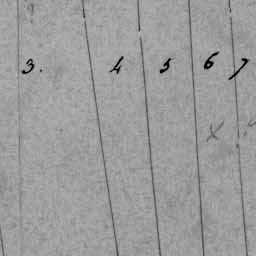 3. 4 5 6 7
x